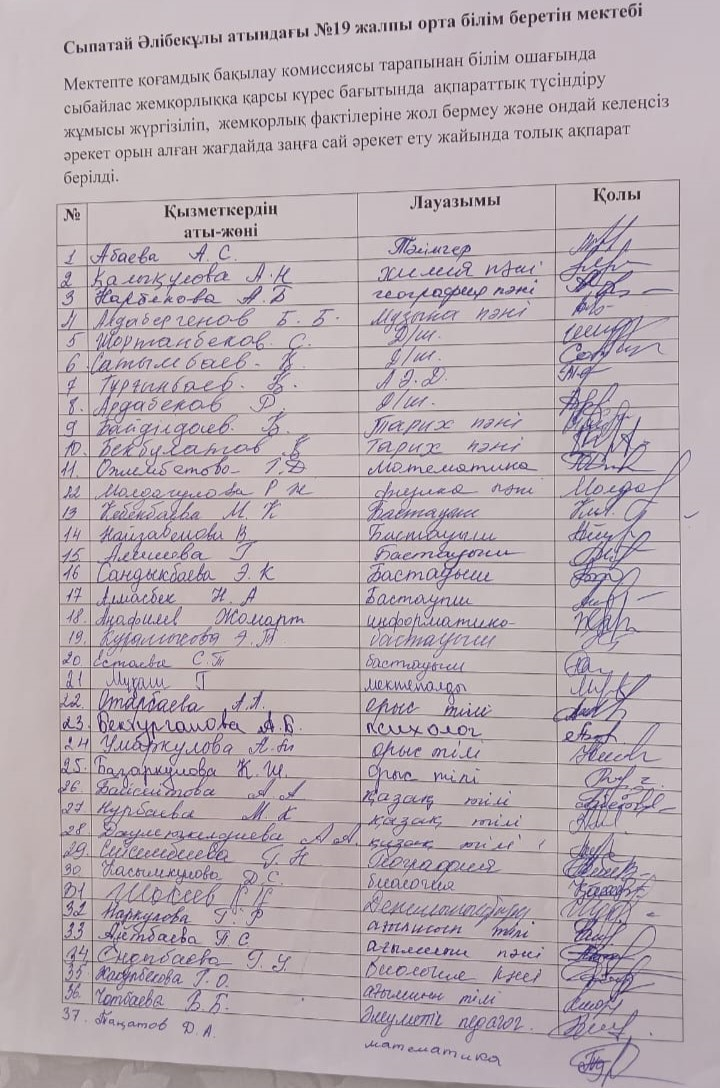 Сыпатай Әлібекұлы атындағы №19 жалпы орта білім беретін мектебі
Мектепте қоғамдық бақылау комиссиясы тарапынан білім ошағында
сыбайлас жемқорлыққа қарсы күрес бағытында ақпараттық түсіндіру
жұмысы жүргізіліп, жемқорлық фактілеріне жол бермеу және ондай келеңсіз
әрекет орын алған жағдайда заңға сай әрекет ету жайында толық ақпарат
берілді.
№ Қызметкердің аты-жөні Лауазымы Қолы
1 Абаева А. С. Тәлімгер
2 Қалықулова А.Н химия пәні
3 Нарбекова А.Б география пәні
4 Алдабергенов Б. Б. Музыка пәні
5 Шортанбеков С. Д/ш.
6 Сатымбаев Қ. Д/ш.
7 Тұрғынбаев Б. А.Ә.Д.
8. Ардабеков Д. Д/ш.
9 Байділдаев Б. Тарих пәні
10. Бекбулатов Қ тарих пәні
11. Г.Д математика
22 Молдагулова Р Н физика пәні Молдаг
13 Кебенбаева М К Бастауыш
14 В Бастауыш
15. Г Бастауыш
16 Сандыкбаева Э. К Бастауыш
17 Алмасбек Н. А Бастауыш
18. Жомарт информатика
19. А.Т бастауыш
20 Естаева С.Т бастауыш
21 Мұқаш Г мектепалды
22. Отарбаева А.А. орыс тілі
23. Бектурганова А.Б. психолог
24 Умбаркулова А. орыс тілі
25. Базаркулова К.Ш. орыс тілі
26. А А қазақ тілі
27 Нурбаева М. К қазақ тілі
28 Даулеткелдиева А А. қазақ тілі
29. Сейсембаева Г. Н География
30 Касымкулова Д.С. биология
31 Шакеев К К
32 Наркулова Г. Ф ағылшын тілі
33 Айтбаева П С ағылшын пәні
34 Г. У биология пәні
35 Г. О. ағылшын тілі
36. Чотбаева В.Б. Әлеуметік педагог.
37. Тақатов Д.А. математика